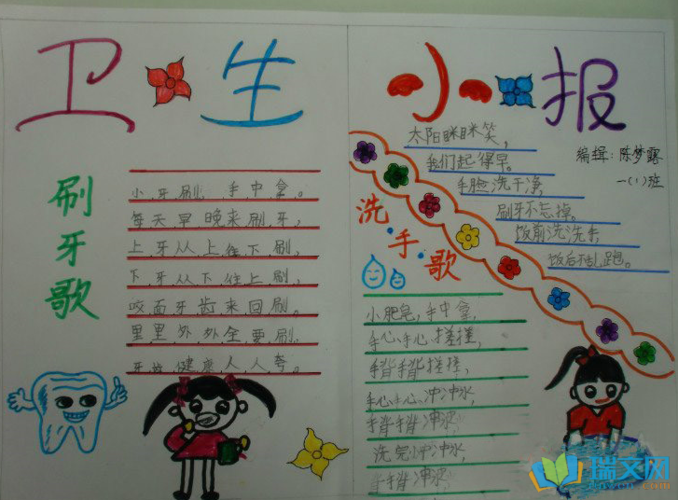 卫生小报
编辑:陈梦露
一(1)班
刷牙歌
小牙刷,手中拿。
每天早晚来刷牙,
上牙从上往下刷,
下牙从下往上刷,
咬面牙齿来回刷。
里里外外全要刷,
牙齿健康人人夸。
太阳眯眯笑,
我们起得早。
手脸洗干净,
刷牙不忘掉。
饭前洗洗手,
饭后不乱跑。
洗手歌
小肥皂,手中拿,
手心手心搓搓,
手背手背搓搓,
手心手心冲冲水,
手背手背冲冲水,
洗完冲冲水,
手背冲冲水
瑞文网